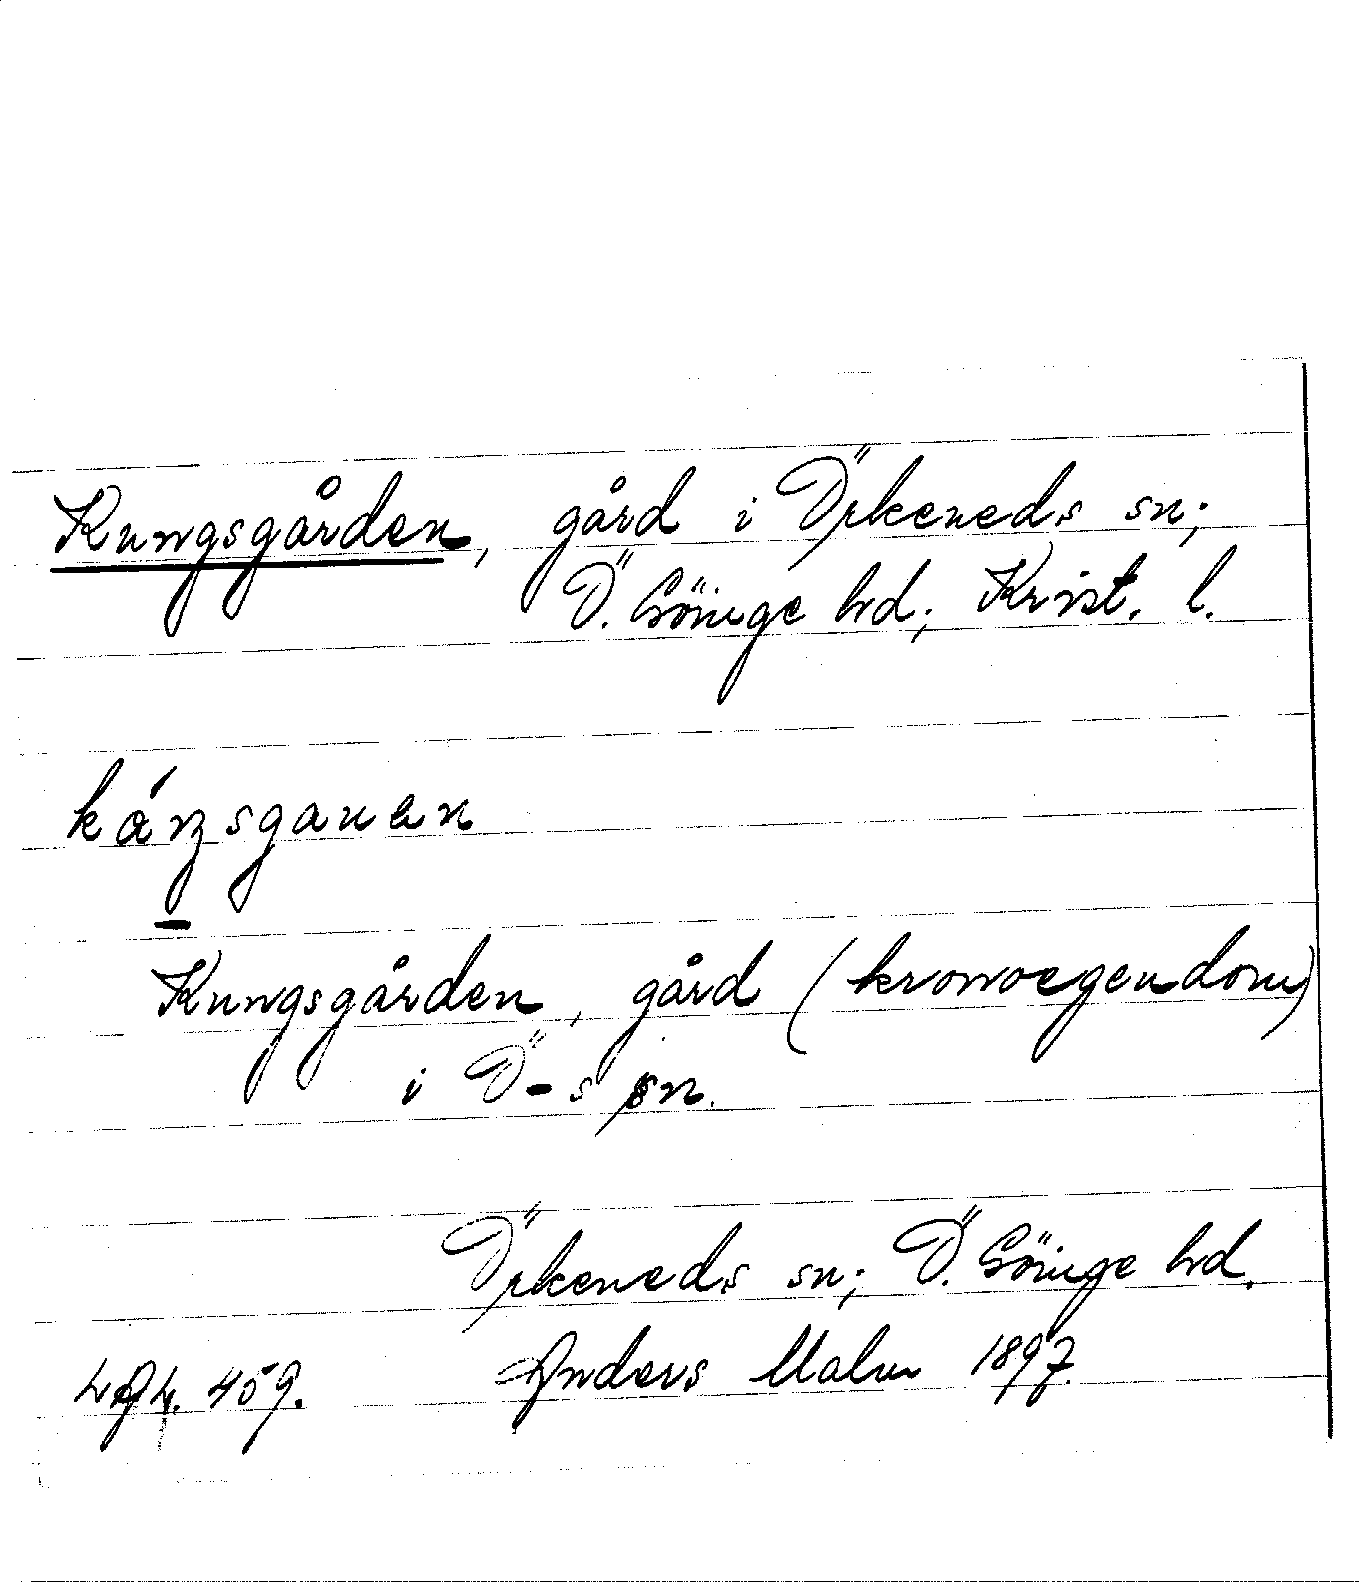 Kungsgården, gård i Örkeneds sn;
Ö. Göinge hd; Krist. l.
káŋsgauen
Kungsgården, gård (kronoegendom)
i Ö-s sn.
Örkeneds sn; Ö. Göinge hd.
459. Anders Malm 1897.